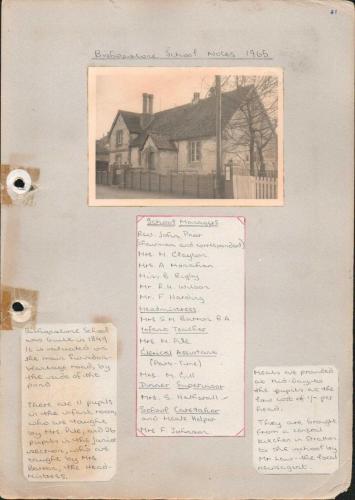 21
Bishopstone School Notes 1965
School Managers
Rev. John Prior
(Chairman and correspondent)
Mrs. M. Claydon
Mrs. A Monahan
Miss. B Rigby
Mr. R.H. Wilson
Mr. F Harding
Headmistress
Mrs S.M. B.A
Infants Teacher
Mrs M. Pile
Clerical Assistant
(Part-Time)
Mrs M. Gill
Dinner Supervisor
Mrs. S.
School Caretaker
and Meals Helper
Mrs F. Johnson
Bishopstone School
was built in 1849
It is situated on
the main Swindon-
Wantage road, by
the side of the
pond
There are 11 pupils
in the infant room,
who are taught
by Mrs Pile, and 26
pupils in the junior
section, who are
taught by Mrs
the Head-
mistress.
Meals are provided
at mid-day to
the pupils at the
low cost of 1/- per
head.
They are brought
from a central
kitchen in
to the school by
Mr the local
newsagent.